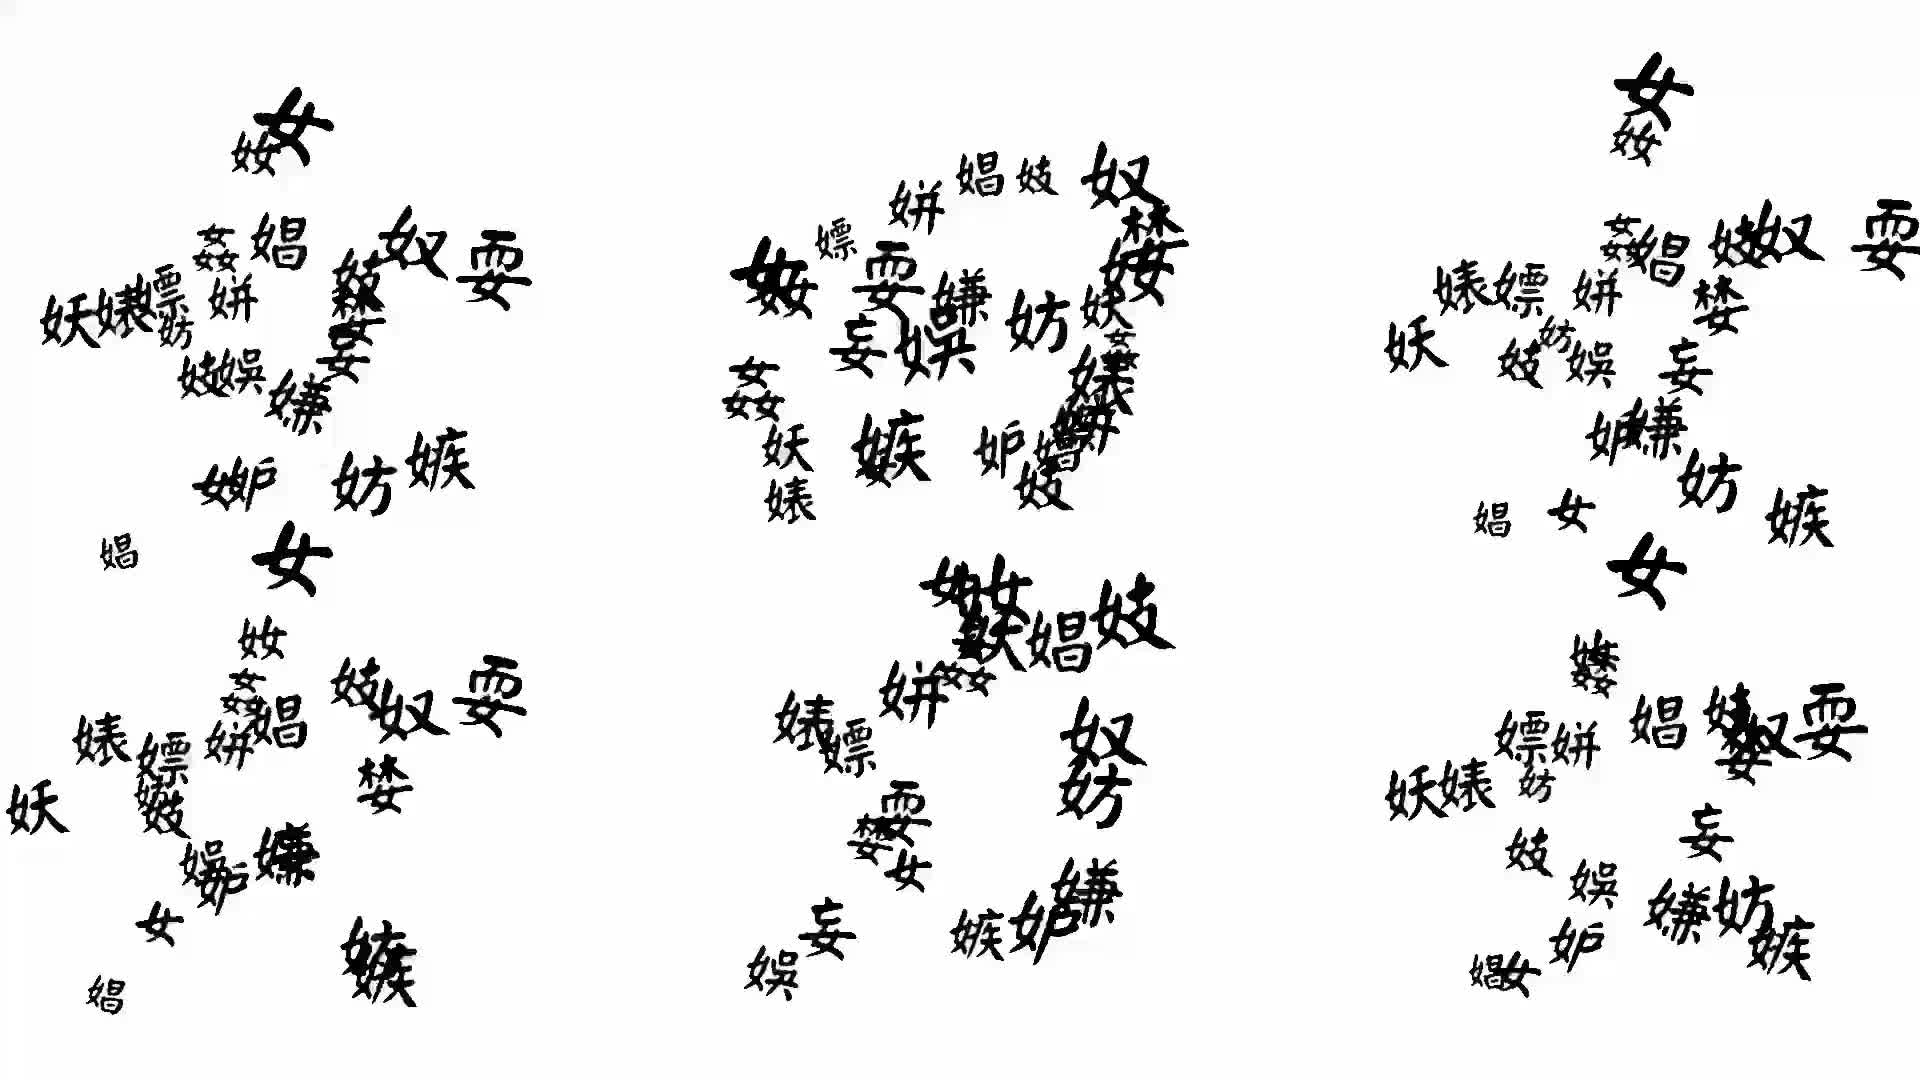 女
奻
姦 娼 妓 奴 耍
妖 婊 嫖 姘 婪
妨 妄
妓 娛 嫌
女 妒 妨 嫉
娼
女
奻
姦 娼 妓 奴 耍
婊 嫖 姘 婪
妖 妓
娛 妒 嫌
女
嫉
娼
嫖 姘 娼 妓 奴
婪
耍 嫌 妨 妖 姦
妄 娛 婊
姦
妖 嫉 妒 娼 姘
婊 妓
女
妖 娼 妓
姘
婊 嫖 奴
耍 妨
婪
女 嫌
妄 嫉 妒
娛
女
奻
姦 娼 妓 奴 耍
婊 嫖 姘 婪
妖 妓 妨 娛 妄
妒 嫌
娼 女 妨 嫉
女
姦
嫖 姘 娼 奴 耍
妖 婊 妨 婪
妓 娛 妄
妒 嫌 妨 嫉
娼 女